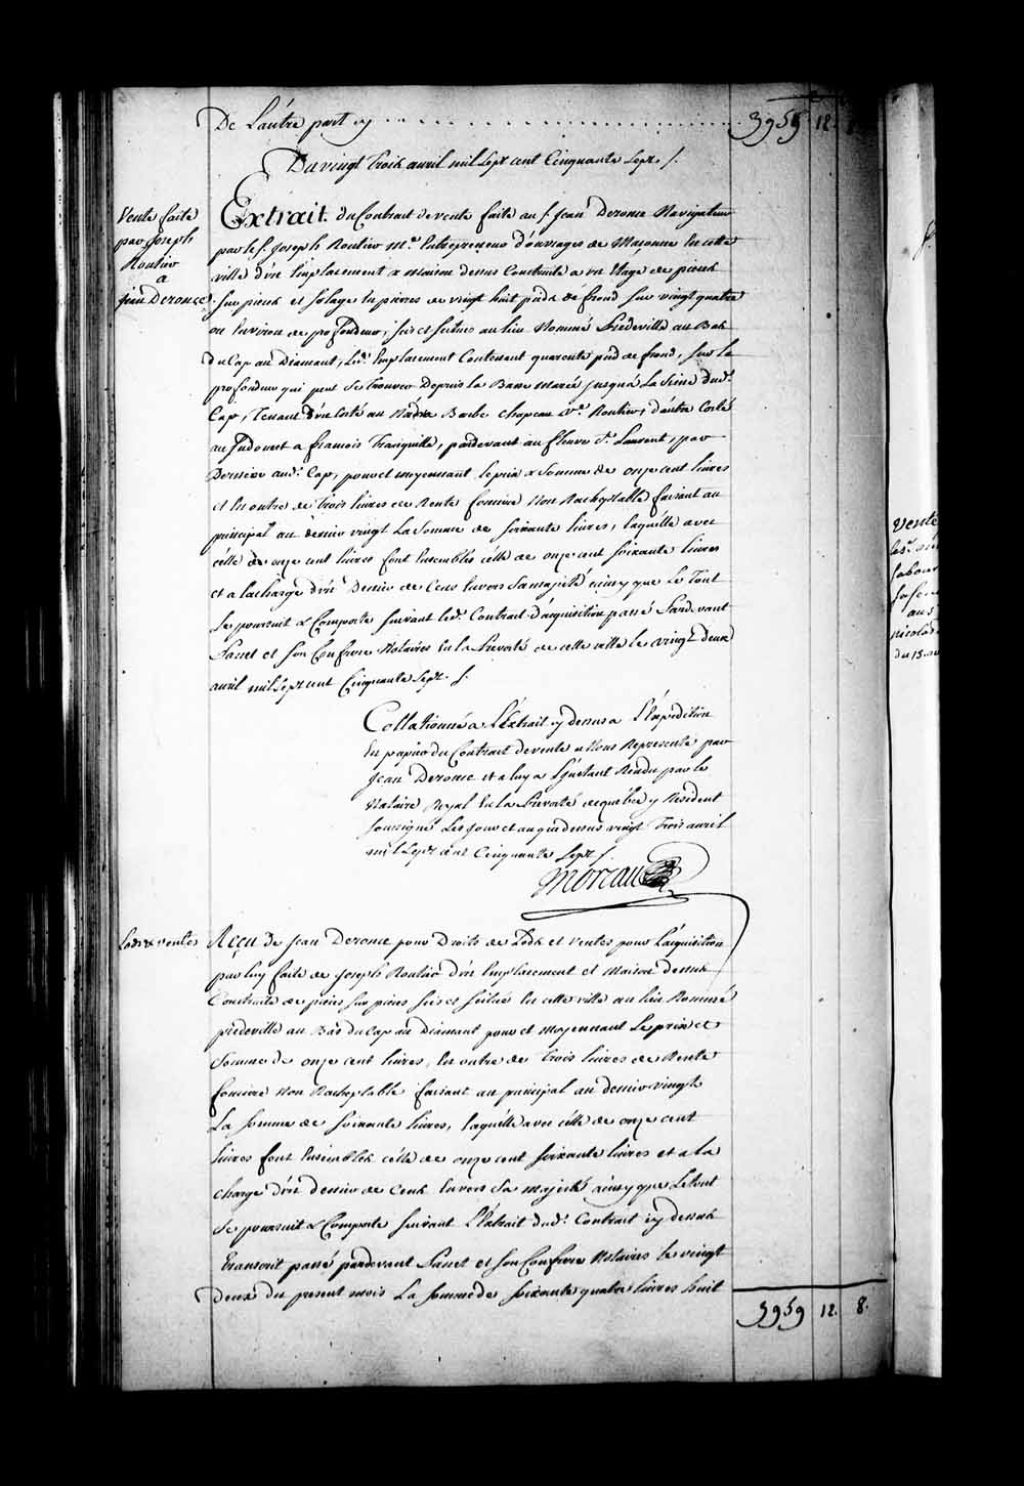 De Lautre part cy . . . . . . . . . . . . . . . . . . . . . 3959 12. 8
Du vingt Trois avril mil Sept cent Cinquante Sept. /.
Vente faite
par Joseph
Routier
a
Jean Derome
Extrait du Contract de vente faite au S. Jean Derome Navigateur
par le S. Joseph Routier Me. Entrepreneur d'ouvrages de Maçonne En cette
ville d'un Emplacement & maison dessus Construite a un Etage de pieces
sur pieces et Solage En pierres de vingt huit pieds de frond sur vingt quatre
ou Environ de profondeur, sis et scitué au lieu Nommé Prèdeville au Bas
du Cap au Diamant, Led. Emplacement Contenant quarente pied de frond, sur la
profondeur qui peut se trouver Depuis la Basse Marée jusqu'a La Seime dud.
Cap, Tenant d'un Costé au Barbe Chapeau Ve. Routier, d'autre Costé
au Sudouest a francois Tranquille, pardevant au fleuve St. Laurent, par
Derriere aud. Cap, pour et moyennant le prix & Somme de onze cent livres
et En outre de trois livres de Rente fonciere Non Racheptable faisant au
principal au denier vingt La Somme de Soixante livres, laquelle avec
célle de onze cent livres font Ensembles célle de onze cent soixante livres
et a la charge d'un Denier de Cens Envers Sa majesté ainsy que Le Tout
Se poursuit & Comporte suivant led. Contrat d'acquisition passé Pardevant
Sanet et son Confrere Notaires En la Prevosté de cette ville le vingt deux
avril mil Sept cent Cinquante Sept. /.
Collationné a L'Extrait cy dessus a L'Expedition
En papier du Contract de vente a Nous Representé par
Jean Derome et a luy a L'instant Rendu par le
Notaire Royal En la Prevosté de quebec y Resident
soussigné Les jour et an que dessus vingt Trois avril
mil Sept cent Cinquante Sept /.
Moreau
Lods & ventes
Reçu de Jean Derome pour Droits de Lods et ventes pour L'acquisition
par luy faite de Joseph Routier d'un Emplacement et Maison dessus
Construite de pieces sur pieces sis et scitué En cette ville au lieu Nommé
prèdeville au Bas du Cap au Diamant pour et moyennant Le prix et
Somme de onze cent livres, En outre de Trois livres de Rente
fonciere Non Racheptable faisant au principal au denier vingt
La somme de soixante livres, laquélle avec célle de onze cent
livres font Ensembles célle de onze cent soixante livres et a la
charge d'un denier de Cens Envers Sa majesté ainsy que Le tout
Se poursuit & Comporte suivant L'Extrait dud. Contract cy dessus
transcrit passé pardevant Sanet et son Confrere Notaires le vingt
deux du present mois La somme de soixante quatre livres huit
3959 12. 8.
Vente